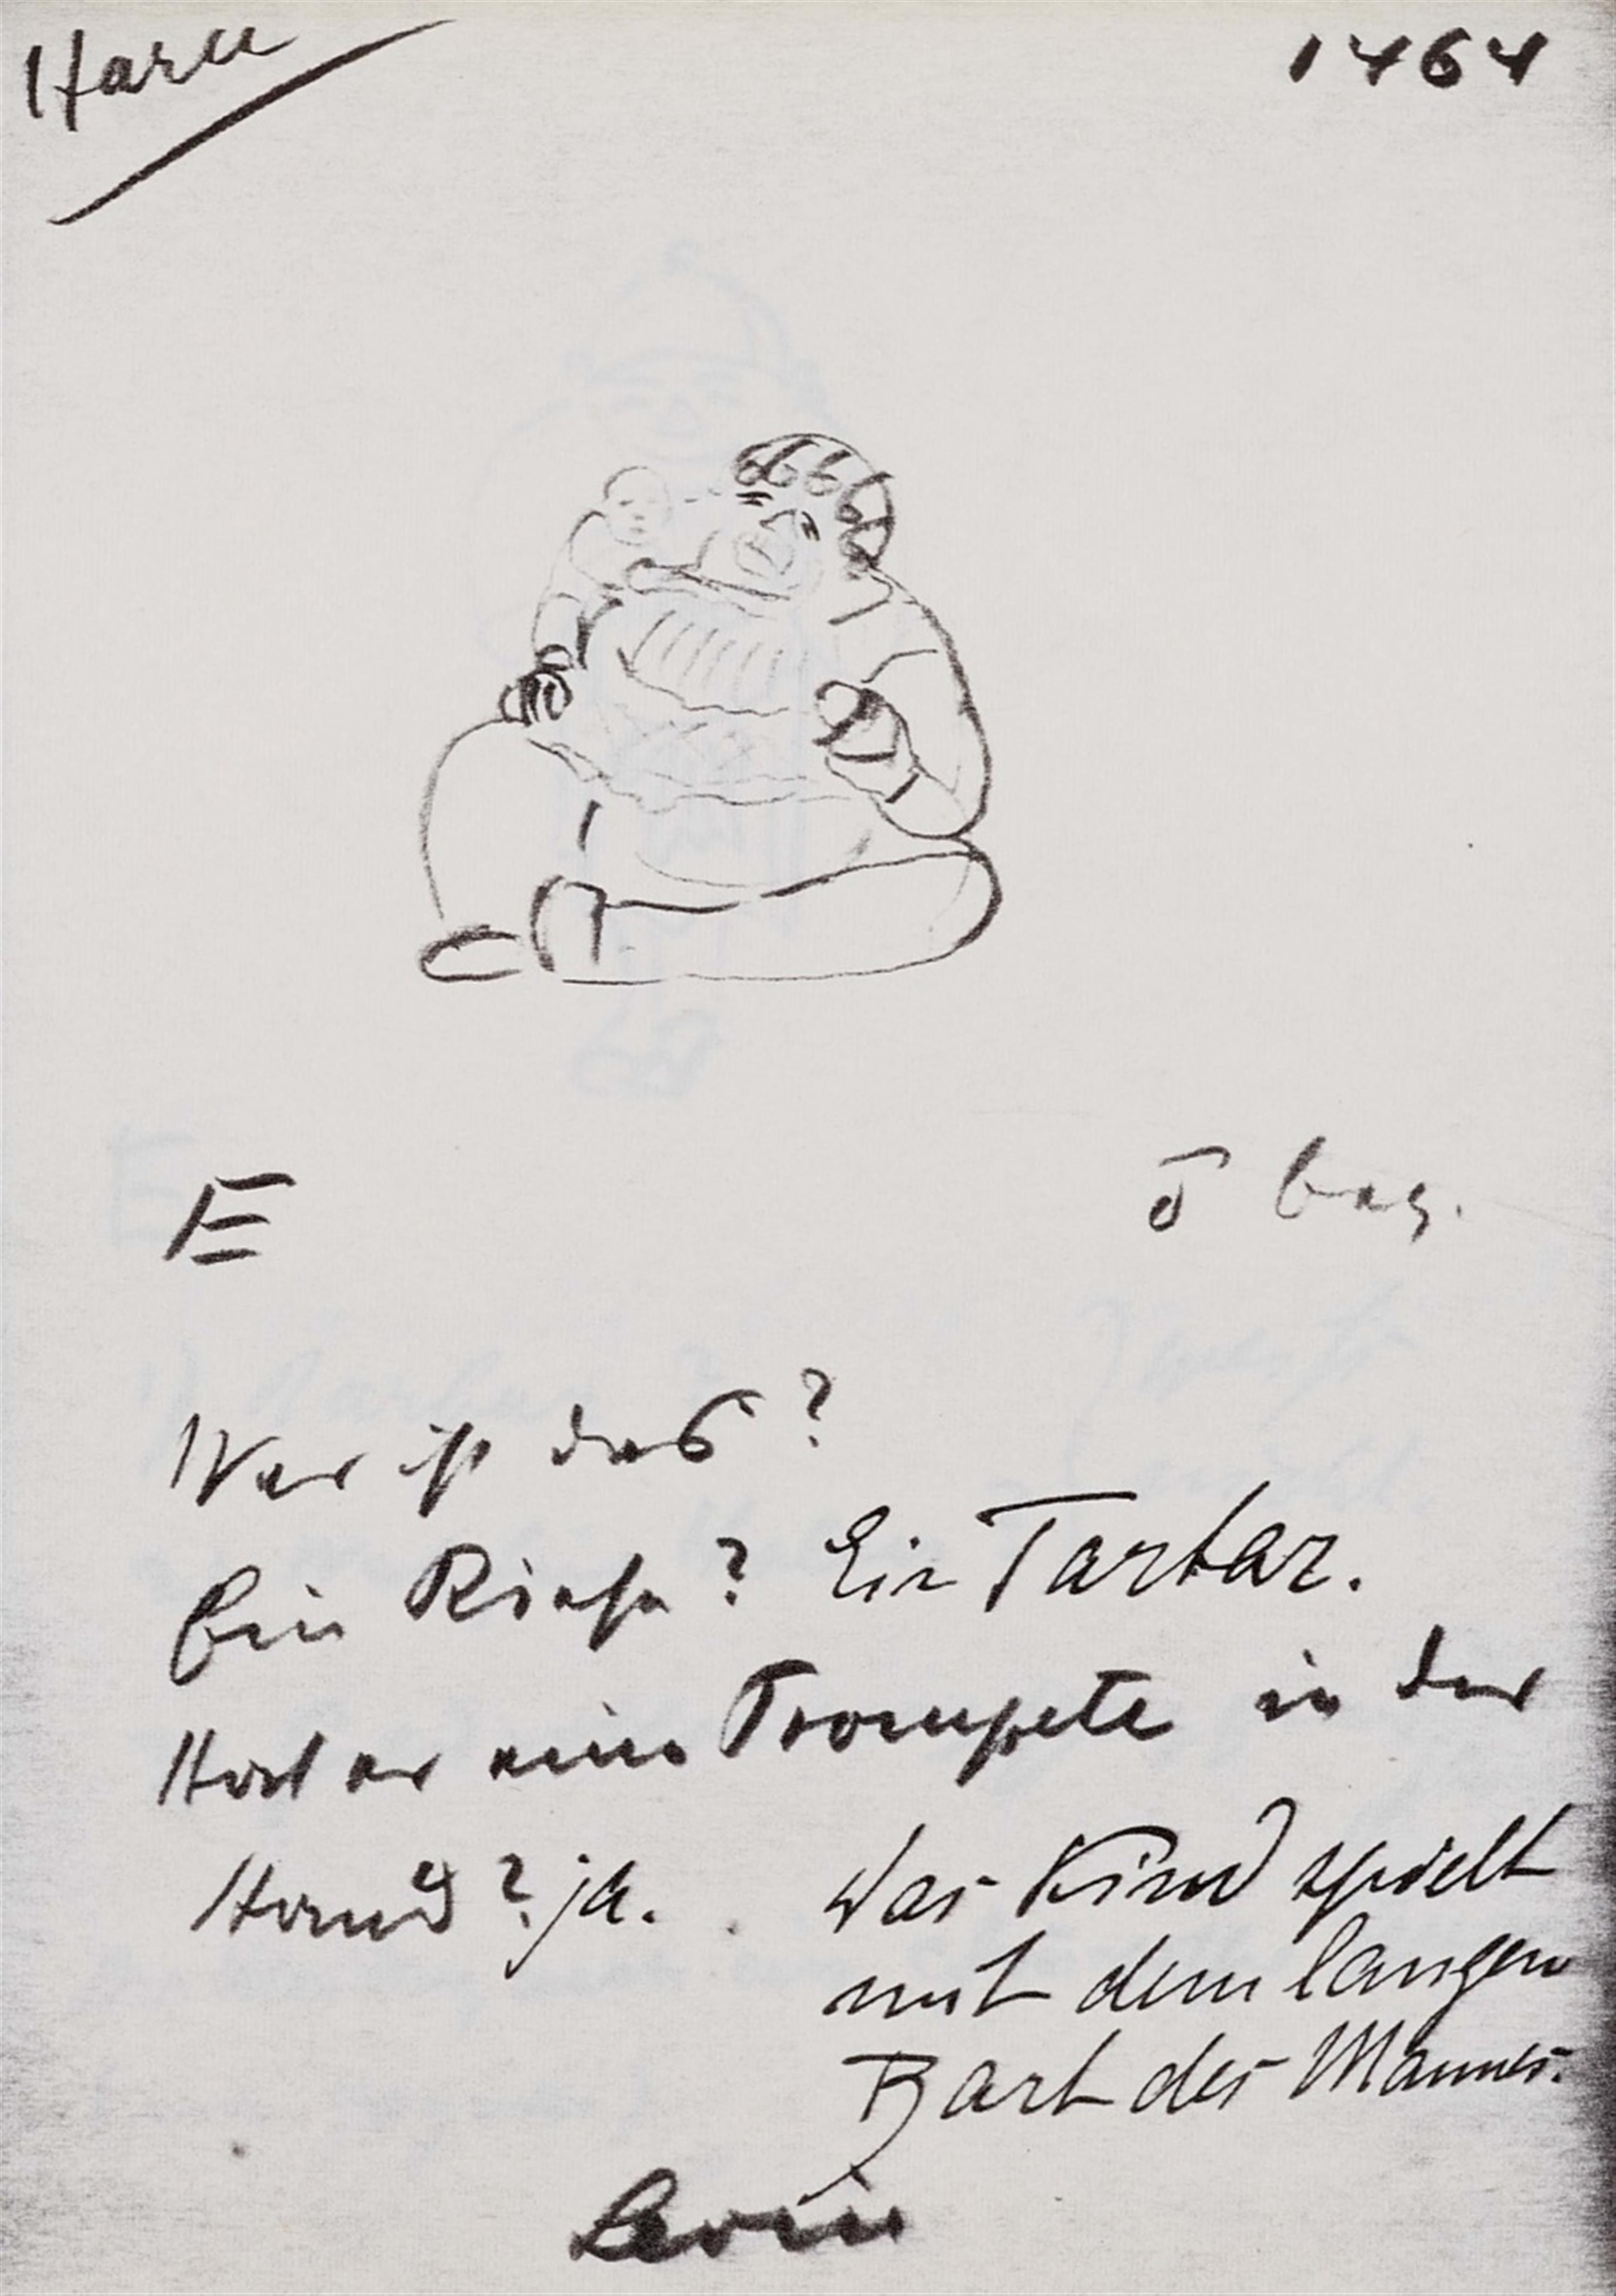 Haru
1464
E
ō bez.
Wer ist das?
Ein Riese? Ein Tartar.
Hat er eine Trompete in der
Hand? ja. Das Kind spielt
mit dem langen
Bart des Mannes.